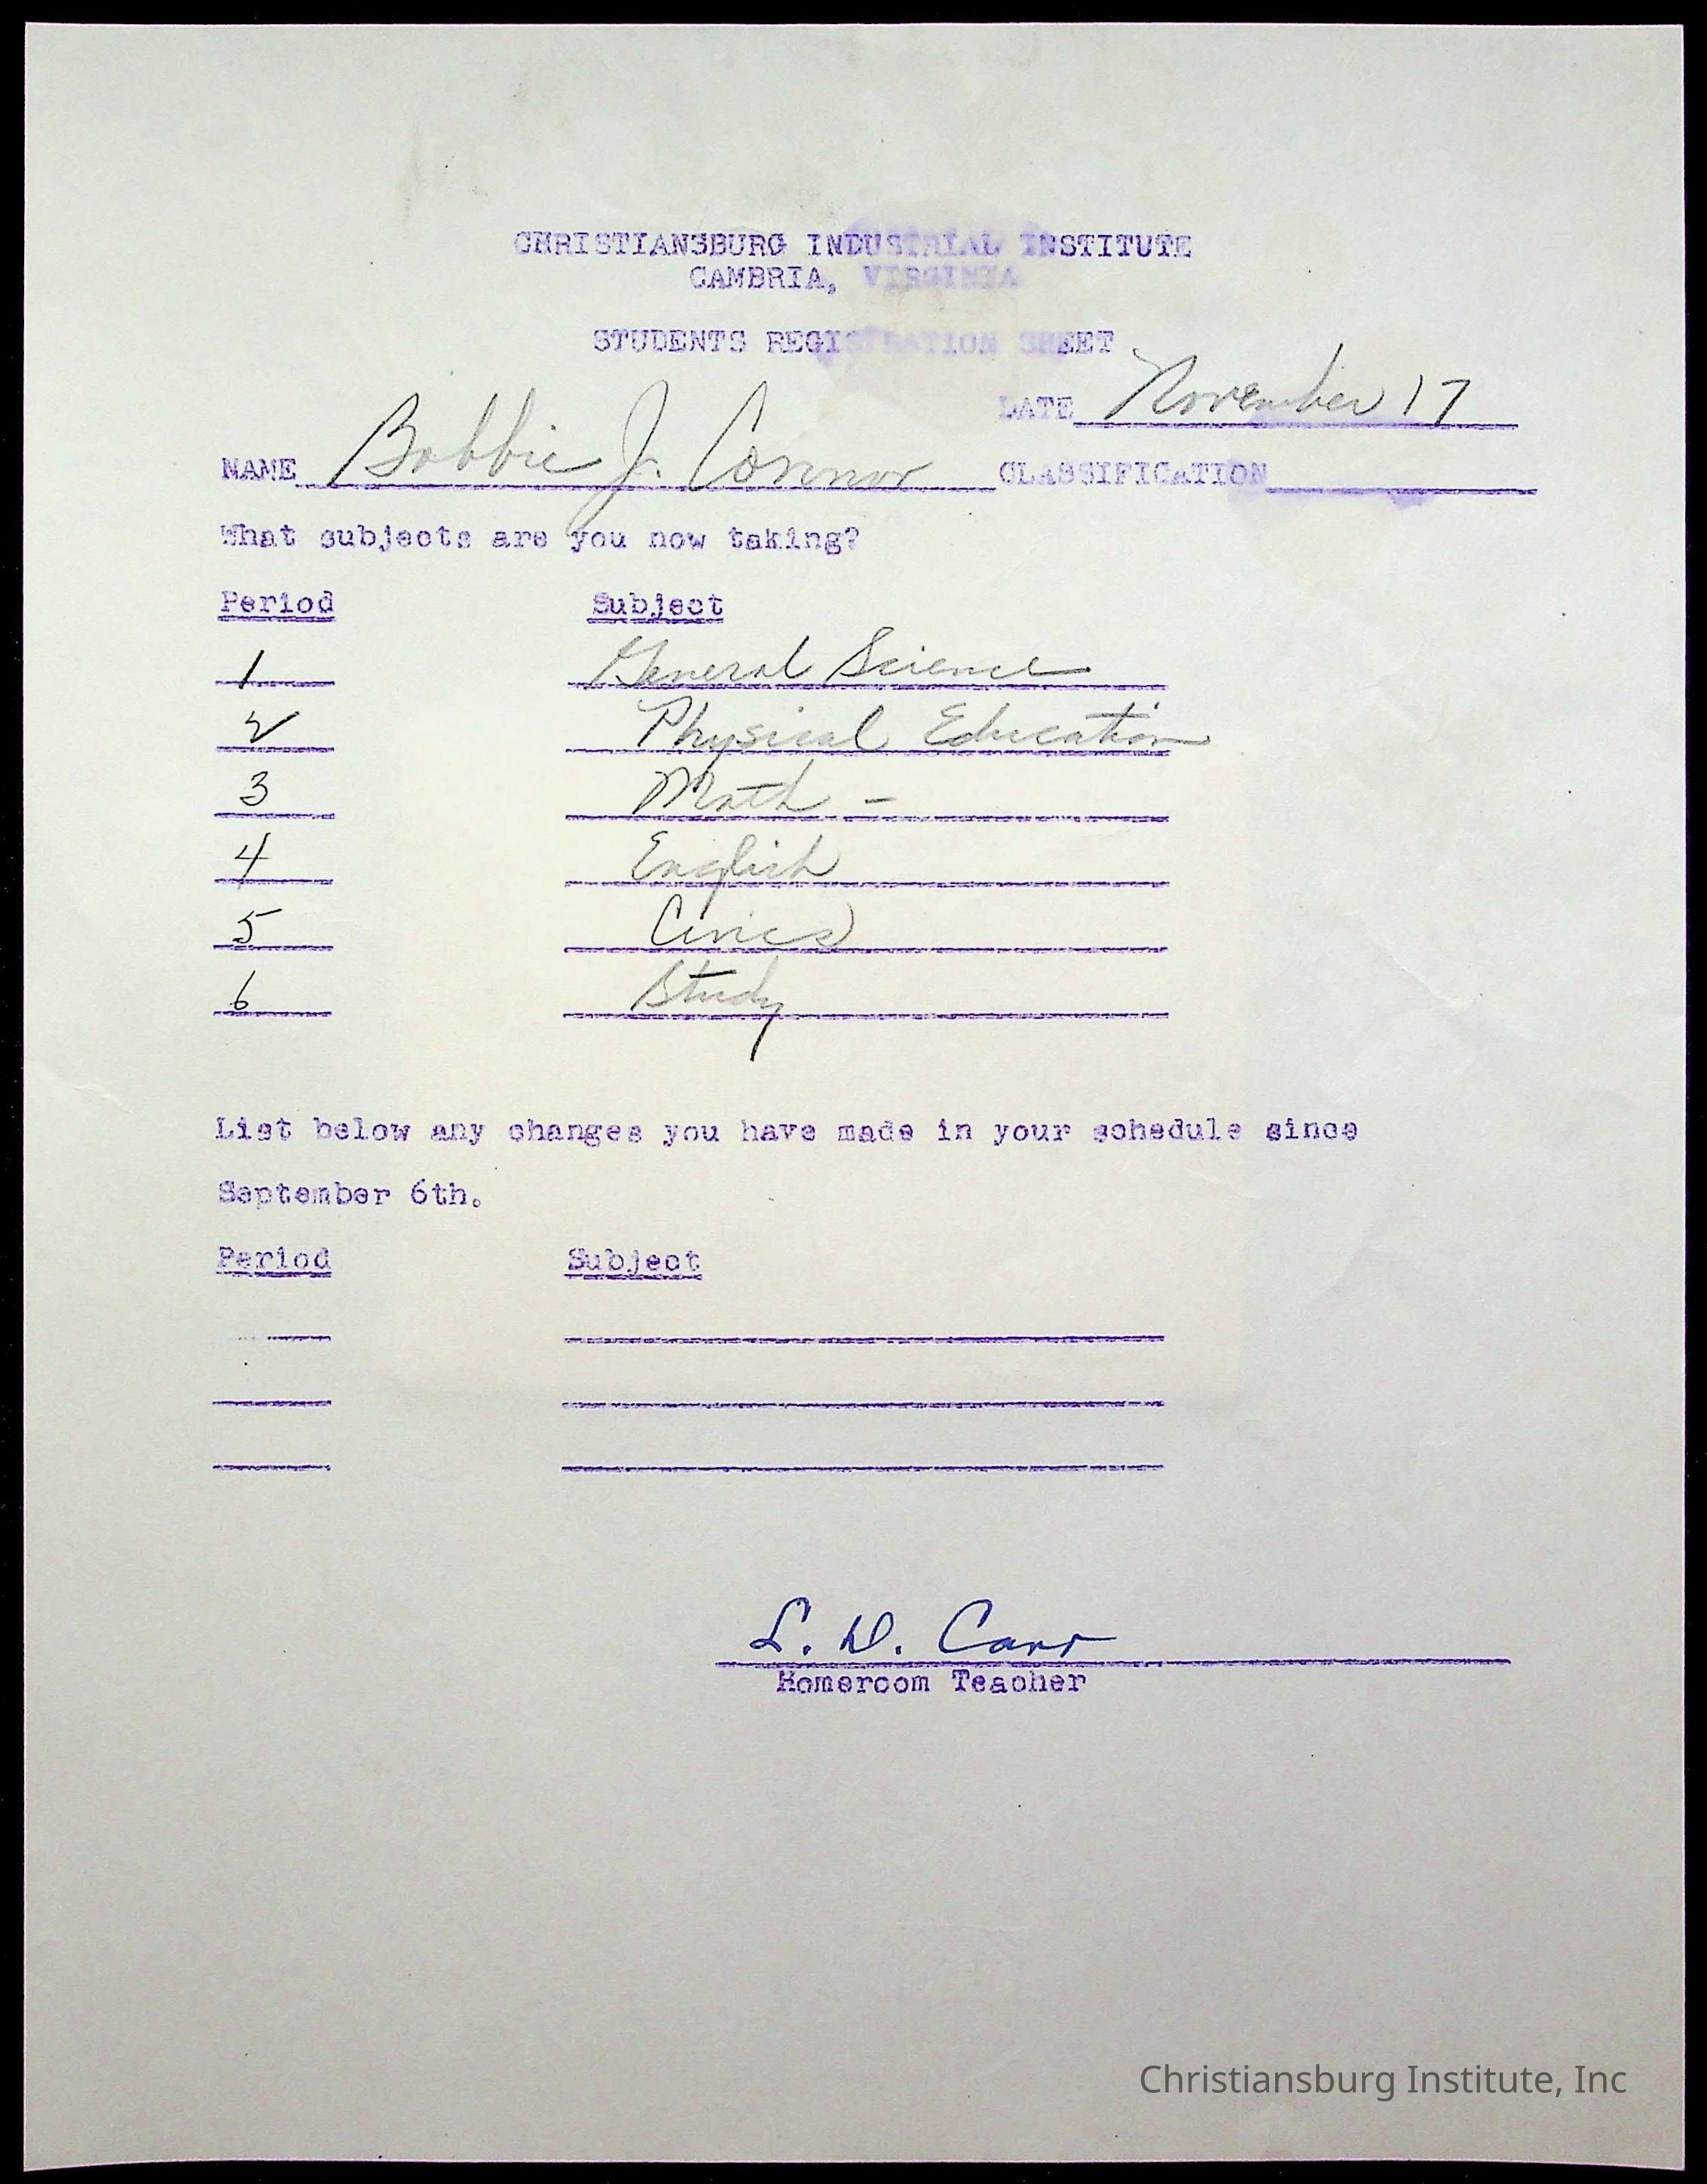 CHRISTIANSBURG INDUSTRIAL INSTITUTE
CAMBRIA, VIRGINIA
STUDENTS REGISTRATION SHEET
DATE November 17
NAME Bobbie J. Connor CLASSIFICATION
What subjects are you now taking?
Period Subject
1 General Science
2 Physical Education
3 Math -
4 English
5 Civics
6 Study
List below any changes you have made in your schedule since
September 6th.
Period Subject
S. D. Carr
Homeroom Teacher
Christiansburg Institute, Inc